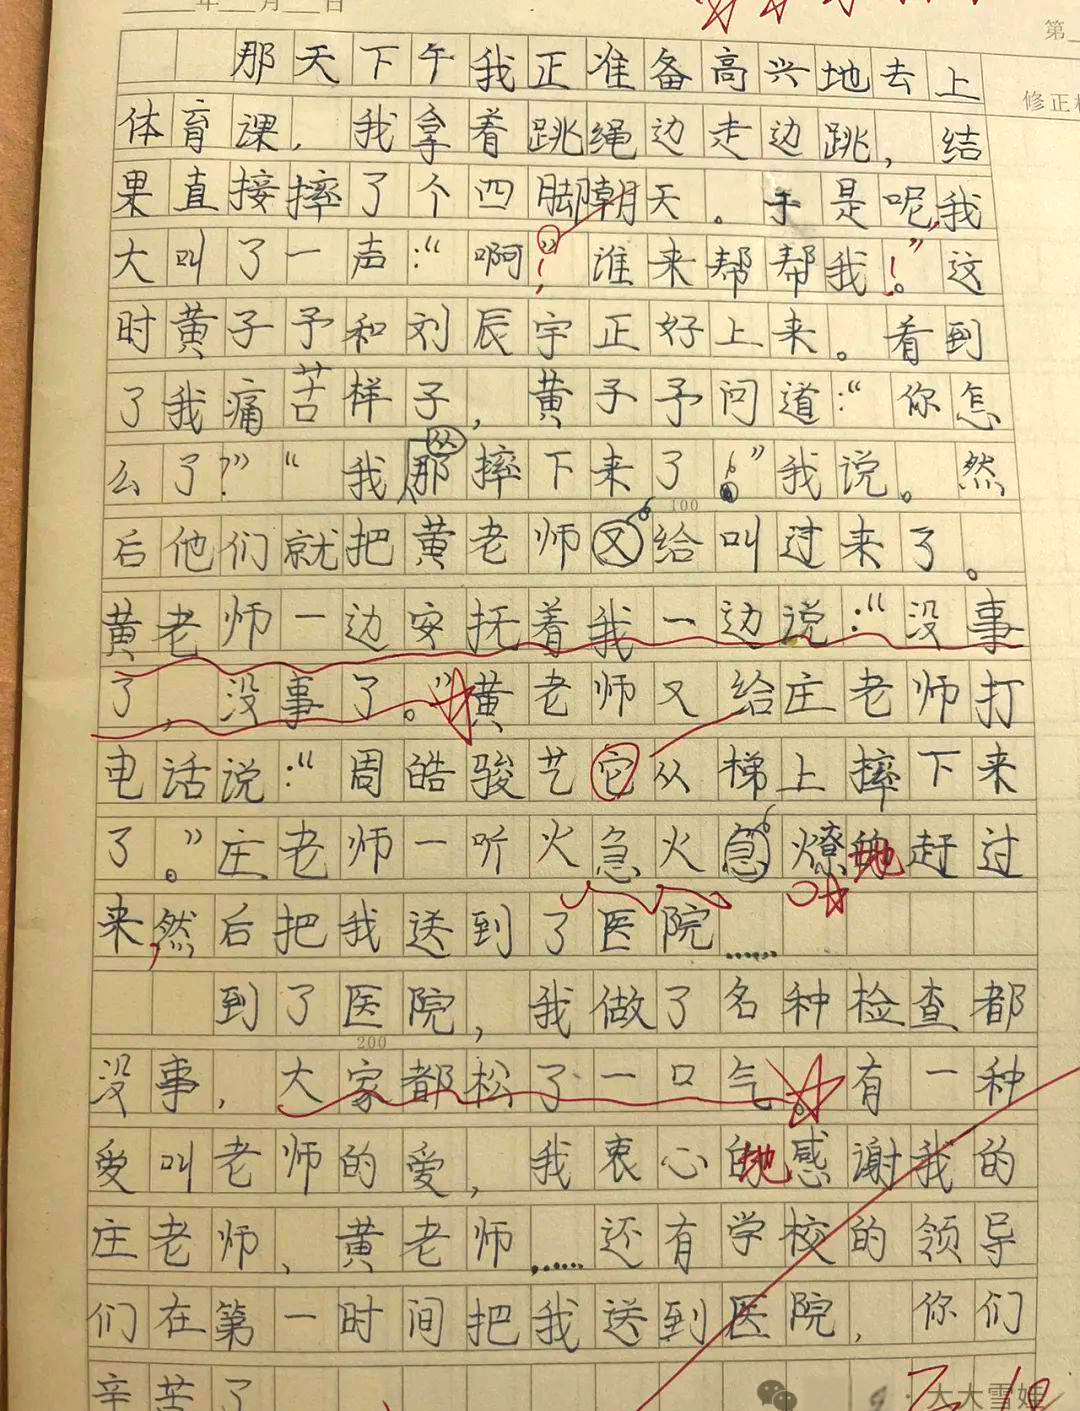 年 月 日
第
修正
那天下午我正准备高兴地去上
体育课，我拿着跳绳边走边跳，结
果直接摔了个四脚朝天。于是呢,我
大叫了一声：“啊！”谁来帮帮我！。”这
时黄子予和刘辰宇正好上来。看到
了我痛苦样子，黄子予问道：“你怎
么了？”“我从那摔下来了！”我说。然
后他们就把黄老师又给叫过来了。
100
黄老师一边安抚着我一边说：“没事
了，没事了。”黄老师又给庄老师打
电话说：“周皓骏艺它从梯上摔下来
了。”庄老师一听火急火急燎地赶过
来,然后把我送到了医院……
到了医院，我做了各种检查都
200
没事，大家都松了一口气。有一种
爱叫老师的爱，我衷心地感谢我的
庄老师、黄老师……还有学校的领导
们在第一时间把我送到医院，你们
辛苦了
大大雪娃